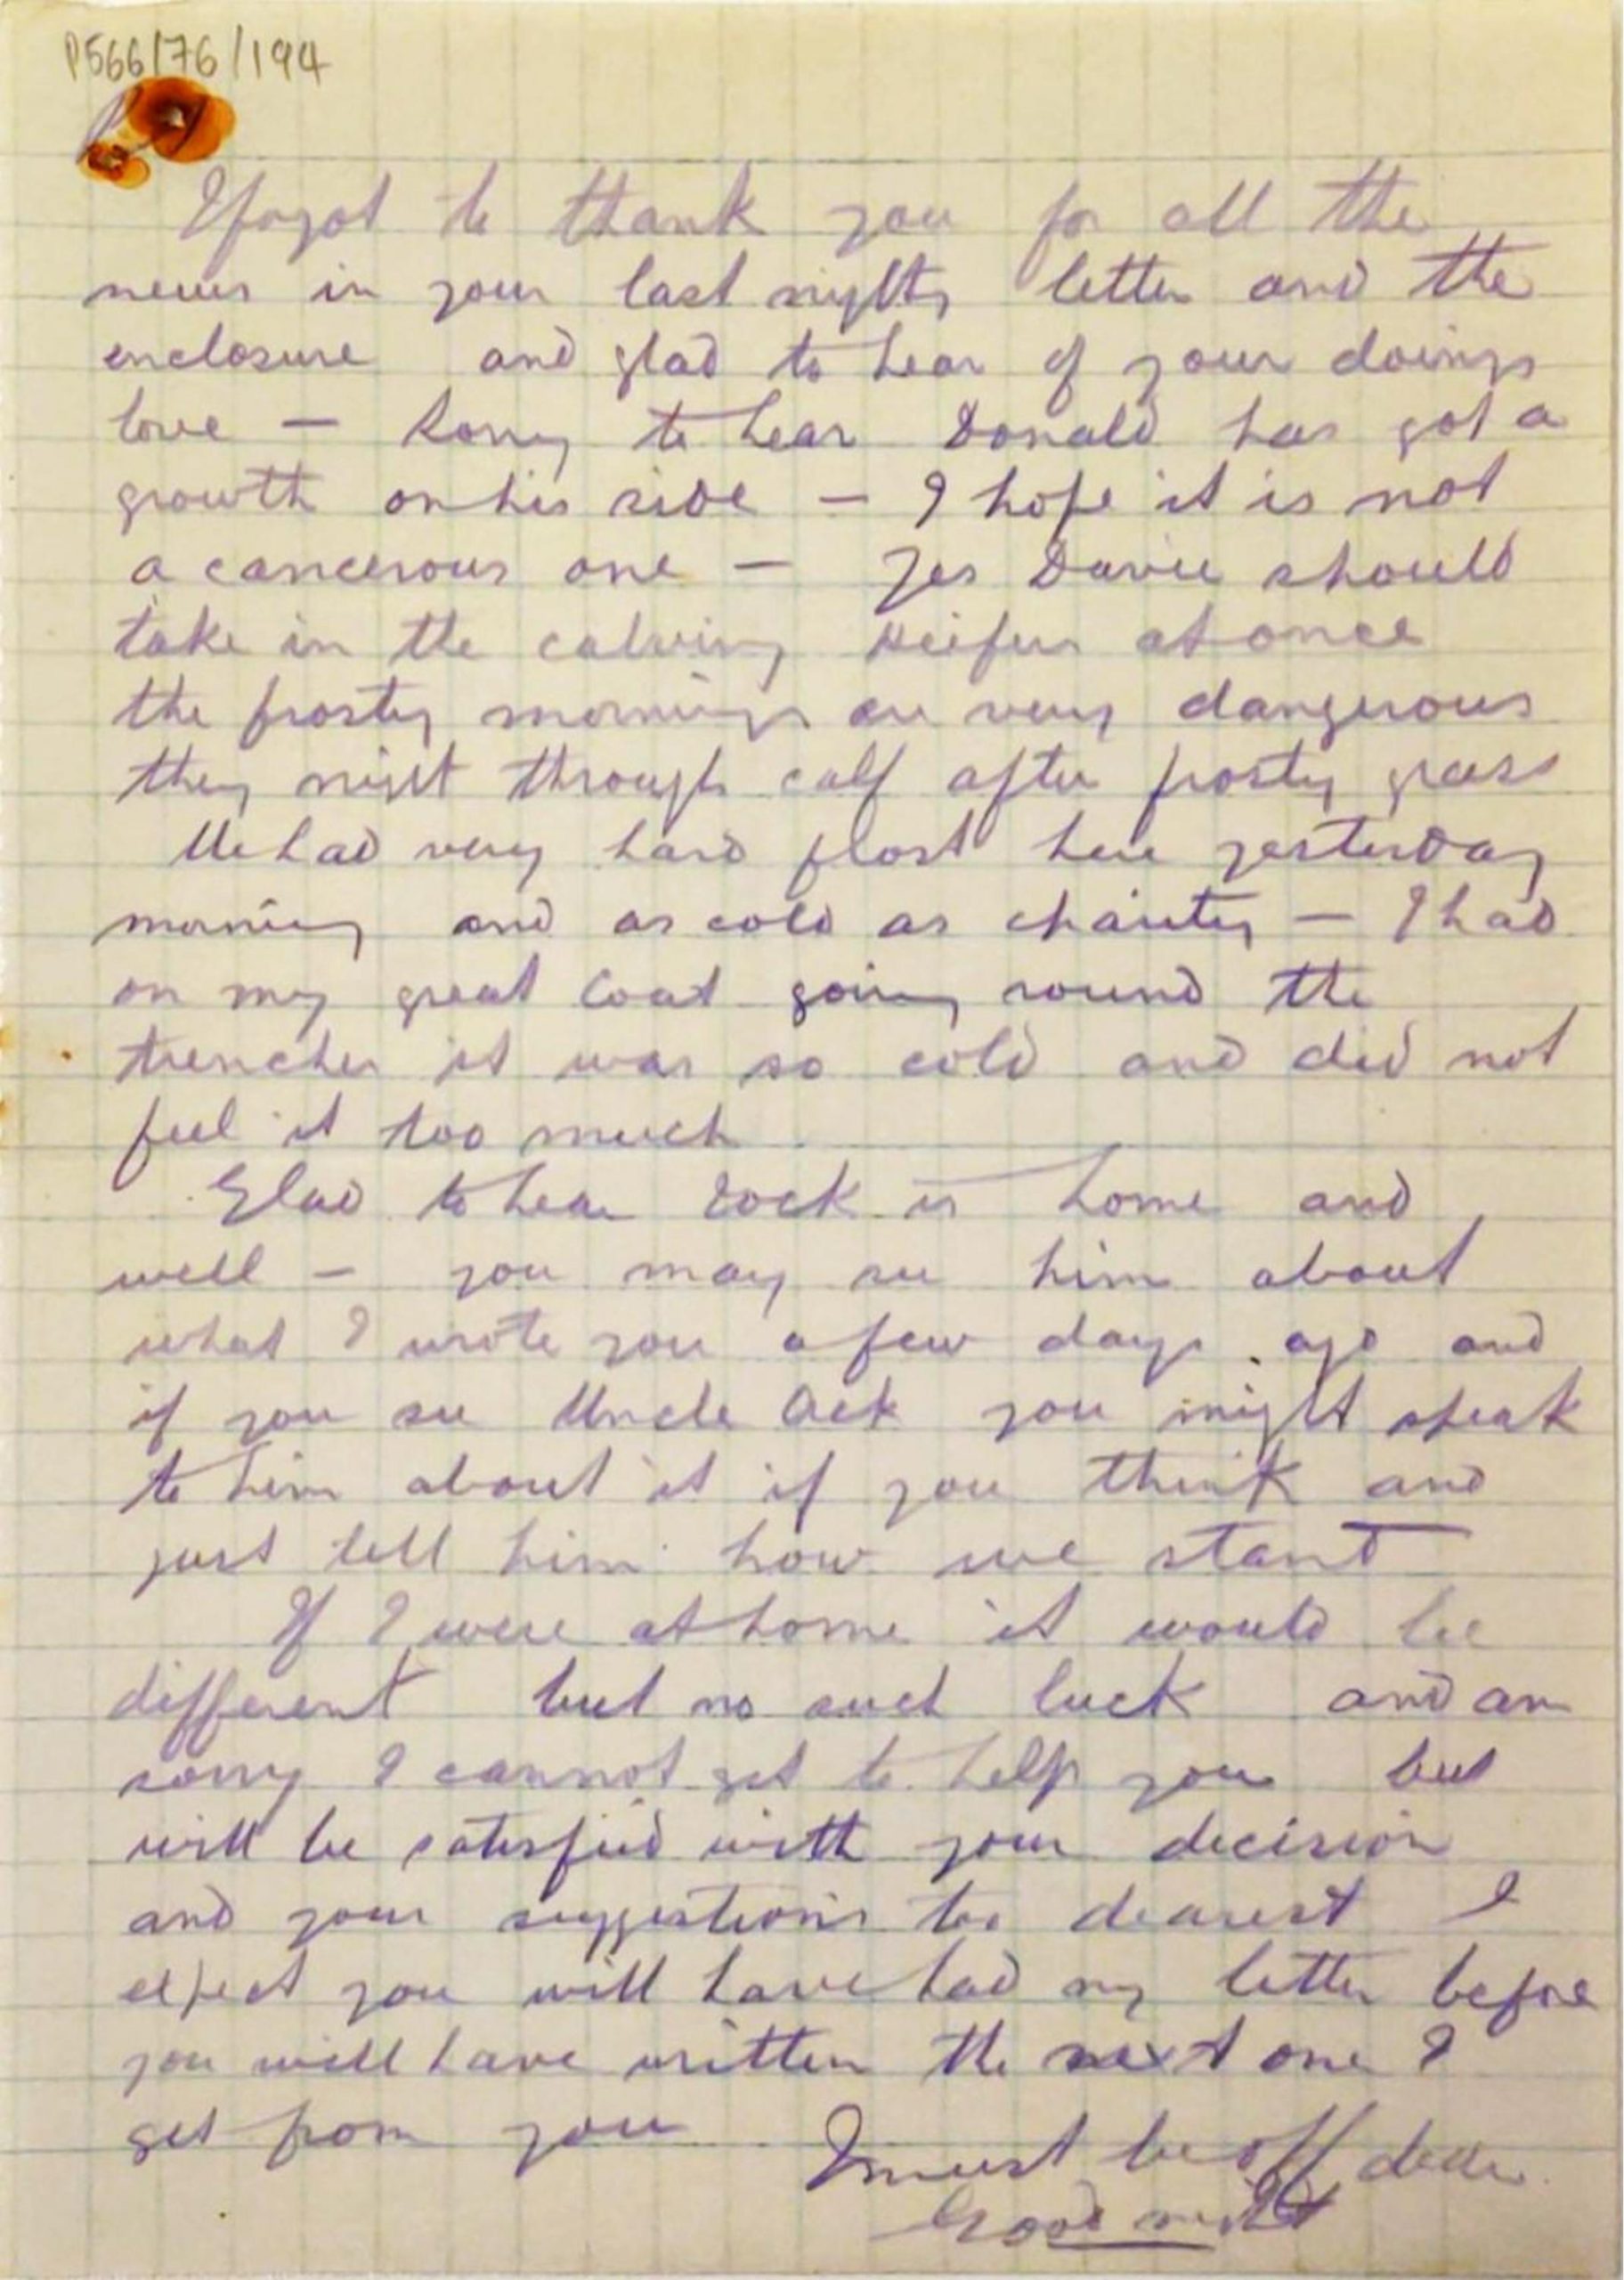 P566/76/194
I forgot to thank you for all the
news in your last nights letter and the
enclosure and glad to hear of your doings
love — Sorry to hear Donald has got a
growth on his side — I hope it is not
a cancerous one — Yes Davie should
take in the calving Heifers at once
the frosty mornings are very dangerous
they might through calf after frosty grass
We had very hard frost here yesterday
morning and as cold as charity — I had
on my great Coat going round the
trenches it was so cold and did not
feel it too much
Glad to hear Jock is home and
well — you may see him about
what I wrote you a few days ago and
if you see Uncle Aek you might speak
to him about it if you think and
just tell him how we stand
If I were at home it would be
different but no such luck and am
sorry I cannot get to help you but
will be satisfied with your decision
and your suggestions too dearest I
expect you will have had my letter before
you will have written the next one I
get from you I must be off dear
Good night